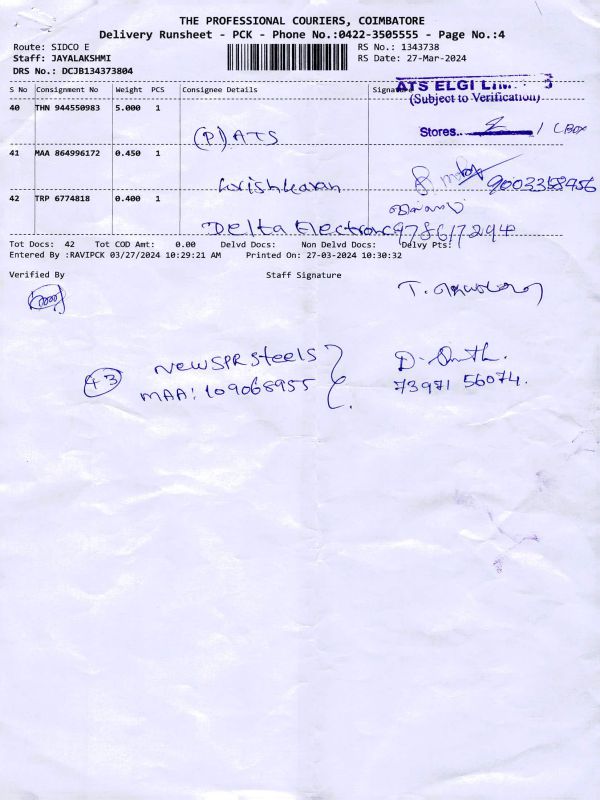 THE PROFESSIONAL COURIERS, COIMBATORE
Delivery Runsheet - PCK - Phone No.:0422-3505555 - Page No.:4
Route: SIDCO E RS No.: 1343738
Staff: JAYALAKSHMI RS Date: 27-Mar-2024
DRS No.: DCJB134373804
ATS ELGI
(Subject to Verification)
S No Consignment No Weight PCS Consignee Details Signature
40 THN 944550983 5.000 1
(P1) ATS
Stores.. 2 / CBOX
41 MAA 864996172 0.450 1
9003358456
42 TRP 6774818 0.400 1
Delta Electronc 978617294
Tot Docs: 42 Tot COD Amt: 0.00 Delvd Docs: Non Delvd Docs: Delvy Pts:
Entered By :RAVIPCK 03/27/2024 10:29:21 AM Printed On: 27-03-2024 10:30:32
Verified By Staff Signature
43 NEWSPR Steels
MAA: 109068955 73971 56074.